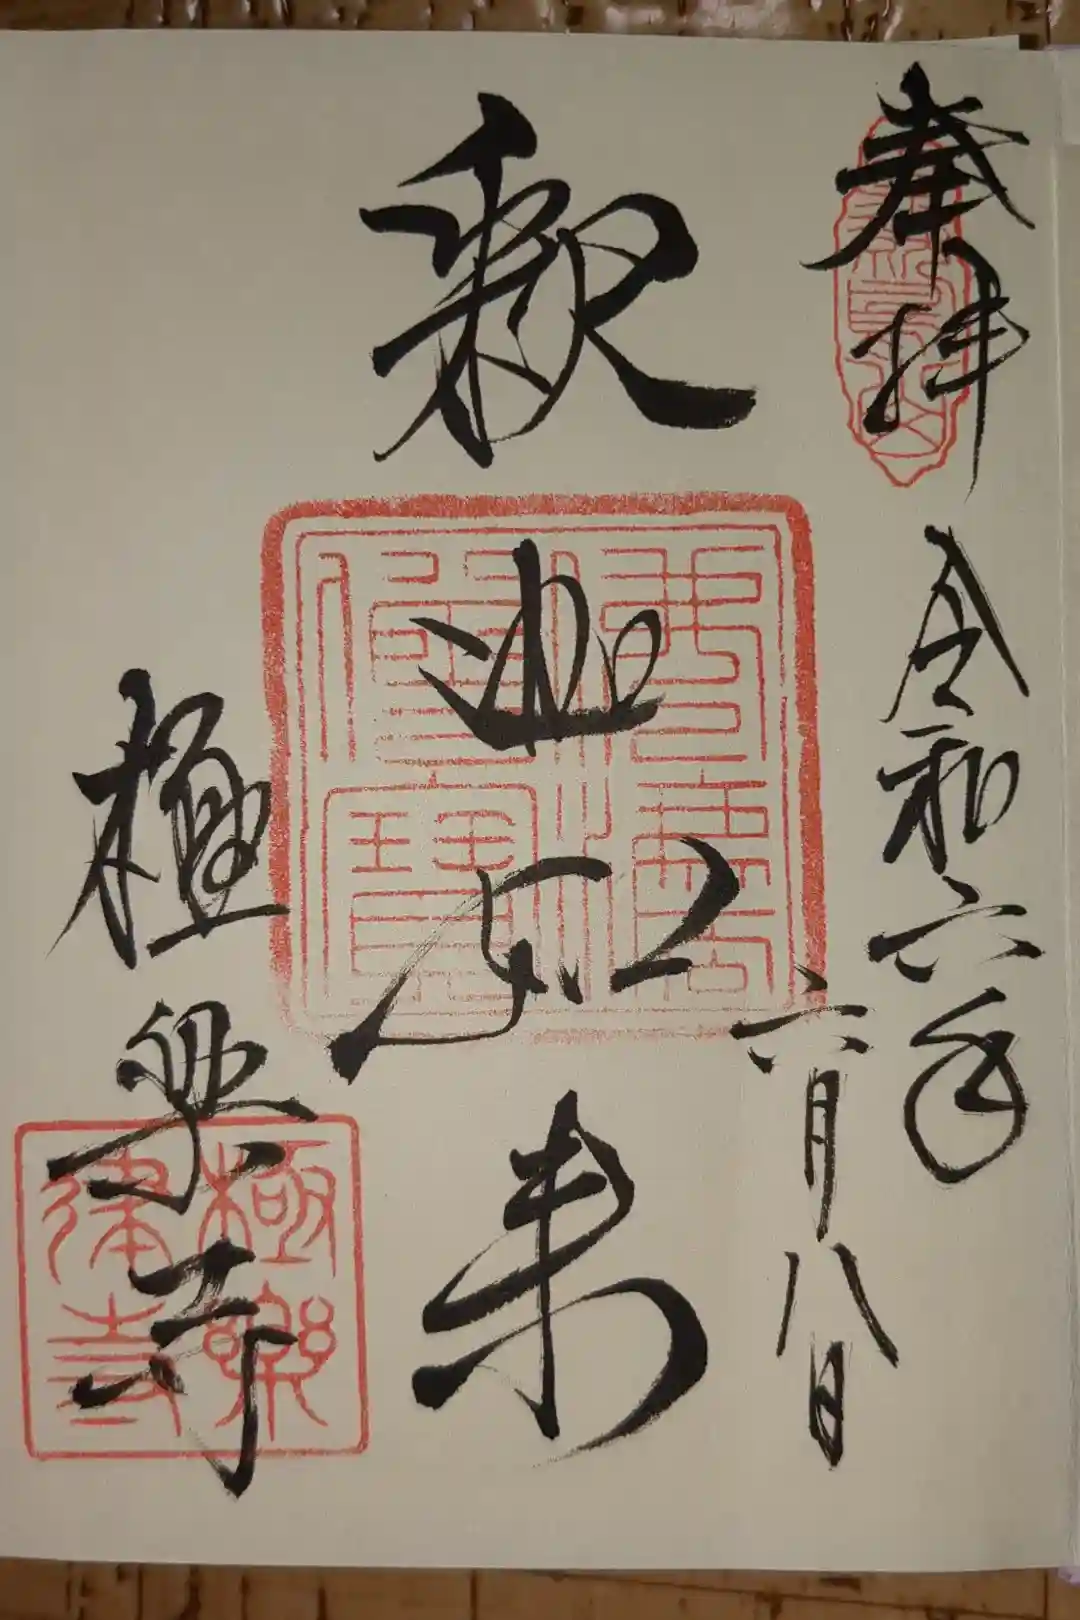 奉拝
令和六年
六月八日
釈迦如来
極楽寺
極楽律寺